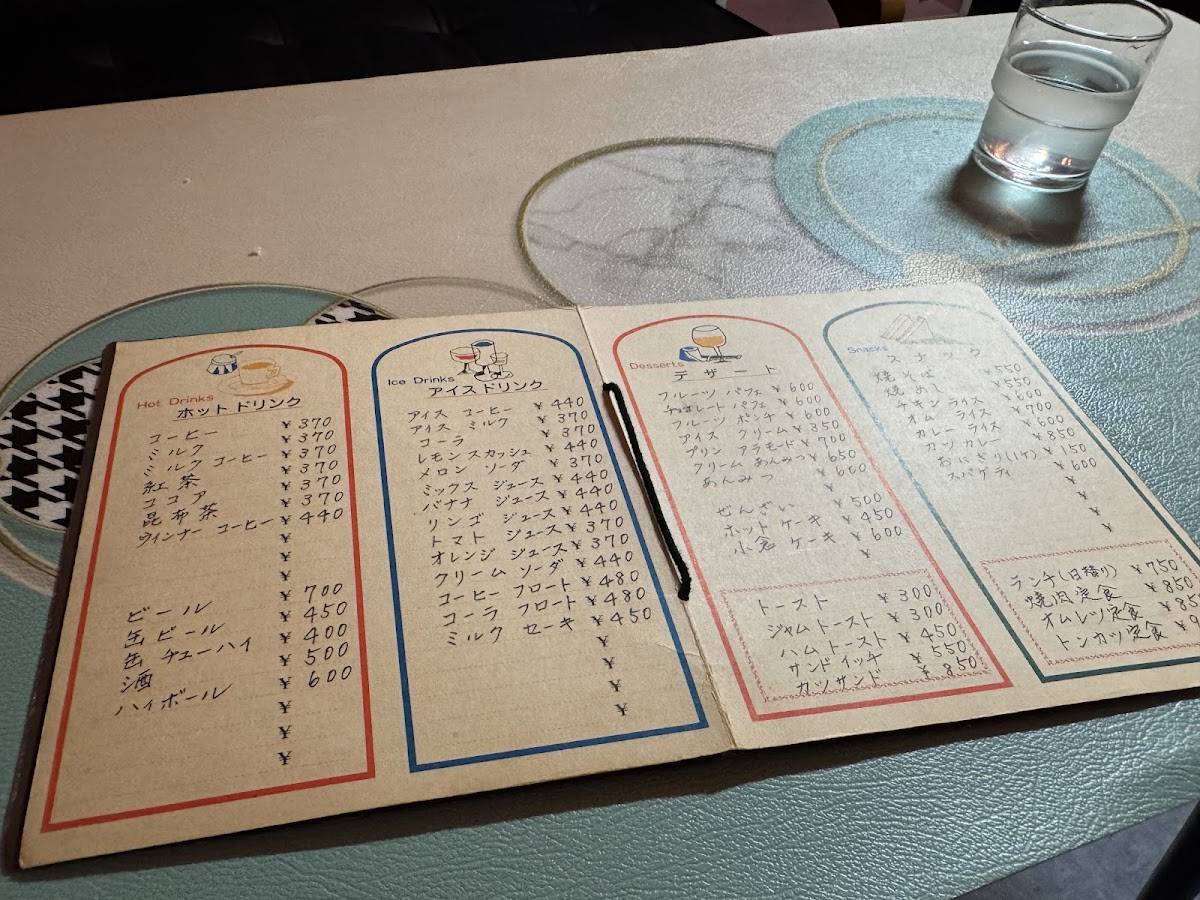 Hot Drinks
ホットドリンク
コーヒー ¥370
ミルク ¥370
ミルク コーヒー ¥370
紅茶 ¥370
ココア ¥370
昆布茶 ¥370
ウインナー コーヒー ¥440
¥
¥
¥
ビール ¥700
缶ビール ¥450
缶チューハイ ¥400
酒 ¥500
ハイボール ¥600
¥
¥
¥
Ice Drinks
アイスドリンク
アイス コーヒー ¥440
アイス ミルク ¥370
コーラ ¥370
レモンスカッシュ ¥440
メロン ソーダ ¥370
ミックス ジュース ¥440
バナナ ジュース ¥440
リンゴ ジュース ¥440
トマト ジュース ¥370
オレンジ ジュース ¥370
クリーム ソーダ ¥440
コーヒー フロート ¥480
コーラ フロート ¥480
ミルク セーキ ¥450
¥
¥
¥
¥
Desserts
デザート
フルーツ パフェ ¥600
チョコレート パフェ ¥600
フルーツ ポンチ ¥600
アイス クリーム ¥350
プリン アラモード ¥700
クリーム あんみつ ¥650
あんみつ ¥600
¥
ぜんざい ¥500
ホット ケーキ ¥450
小倉 ケーキ ¥600
¥
トースト ¥300
ジャムトースト ¥300
ハムトースト ¥450
サンドイッチ ¥550
カツサンド ¥850
Snacks
スナック
焼そば ¥550
焼めし ¥550
チキン ライス ¥600
オム ライス ¥700
カレー ライス ¥600
カツ カレー ¥850
おにぎり(1ケ) ¥150
スパゲティ ¥600
¥
¥
¥
ランチ(日替り) ¥750
焼肉定食 ¥850
オムレツ定食
トンカツ定食